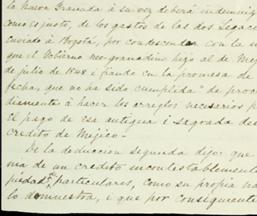 la nueva Granada á su vez deberá indemnizar
como es justo, de los gastos de las dos Legaciones
enviado á Bogotá, por condescender con la
que el Gobierno neo-granadino hizo al de Méj
de julio de 1848 i fiando en la promesa de
fecha, que no ha sido cumplida "de proce
diamente á hacer los arreglos necesarios pa
el pago de esa antigua i sagrada deu
credito de Mejico-
De la deduccion segunda dijo: que
ma de un credito incontestablemente
piedad de particulares, como su propia na
lo demuestra, i que por consiguiente